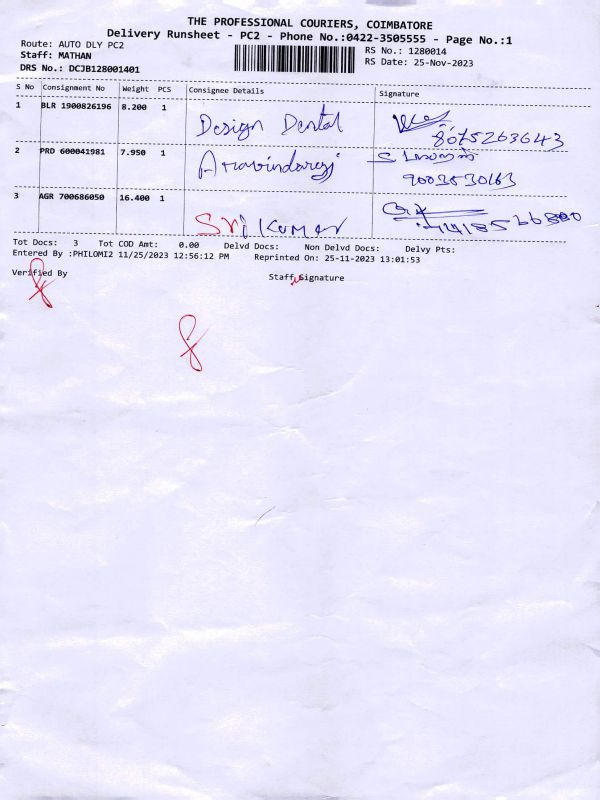 THE PROFESSIONAL COURIERS, COIMBATORE
Delivery Runsheet - PC2 - Phone No.:0422-3505555 - Page No.:1
Route: AUTO DLY PC2
RS No.: 1280014
Staff: MATHAN
RS Date: 25-Nov-2023
DRS No.: DCJB128001401
S No Consignment No Weight PCS Consignee Details Signature
1 BLR 1900826196 8.200 1 Design Dental
8075263643
2 PRD 600041981 7.950 1 Aravindaraj
9003530163
3 AGR 700686050 16.400 1 Sri Kumar
Tot Docs: 3 Tot COD Amt: 0.00 Delvd Docs: Non Delvd Docs: Delvy Pts:
Entered By :PHILOMI2 11/25/2023 12:56:12 PM Reprinted On: 25-11-2023 13:01:53
Verified By
Staff Signature